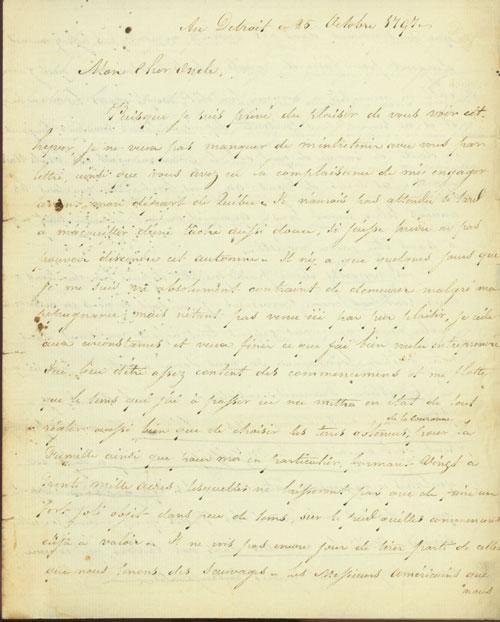 Au Detroit ce 15 Octobre 1797.
Mon Cher Oncle,
Puisque je suis privé du plaisir de vous voir cet
hyver, je ne veux pas manquer de m'entretenir avec vous par
lettre, ainsi que vous avez eu la complaisance de m'y engager
avant mon départ de Québec. Je n'aurois pas attendu si tard
à m'acquitter d'une tâche aussi douce, si j'eusse prévu ne pas
pouvoir descendre cet automne. Il n'y a que quelques jours que
je me suis vû absolument contraint de demeurer malgré ma
répugnance; mais n'étant pas venu ici par pur plaisir, je cède
aux circonstances et veux finir ce que j'ai bien voulu entreprendre
J'ai lieu d'être assez content des commencements et me flatte
que le tems que j'ai à passer ici me mettra en état de tout
régler aussi bien que de choisir les terres obtenues, pour la
de la Couronne
famille ainsi que pour moi en particulier, formant Vingt à
trente mille acres, lesquelles ne laisseront pas que de faire un
fort joli objet dans peu de tems, sur le pied qu'elles commencent
déjà à valoir. Je ne vois pas encore jour de tirer parti de celles
que nous tenons des Sauvages. Les Messieurs Américains que
nous